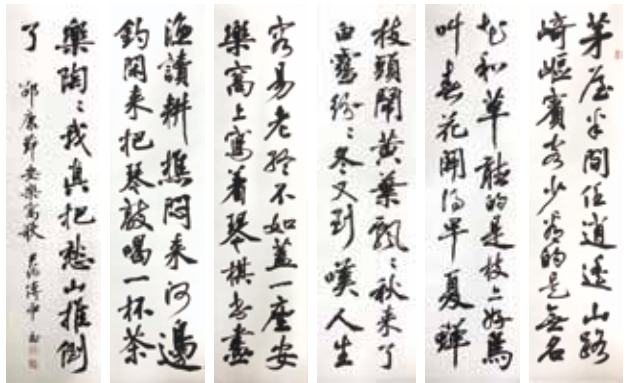 茅屋半間任逍遙山路
崎嶇賓客少看的是無名
花和草聽的是枝上好鳥
叫春花開得早夏蟬
枝頭鬧黃葉飄〻秋來了
白雪紛〻冬又到嘆人生
容易老終不如蓋一座安
樂窩上寫着琴棋書畫
漁讀耕樵悶來河邊
釣閑來把琴敲喝一杯茶
樂陶〻我真把愁山推倒
了
邵康節安樂窩歌